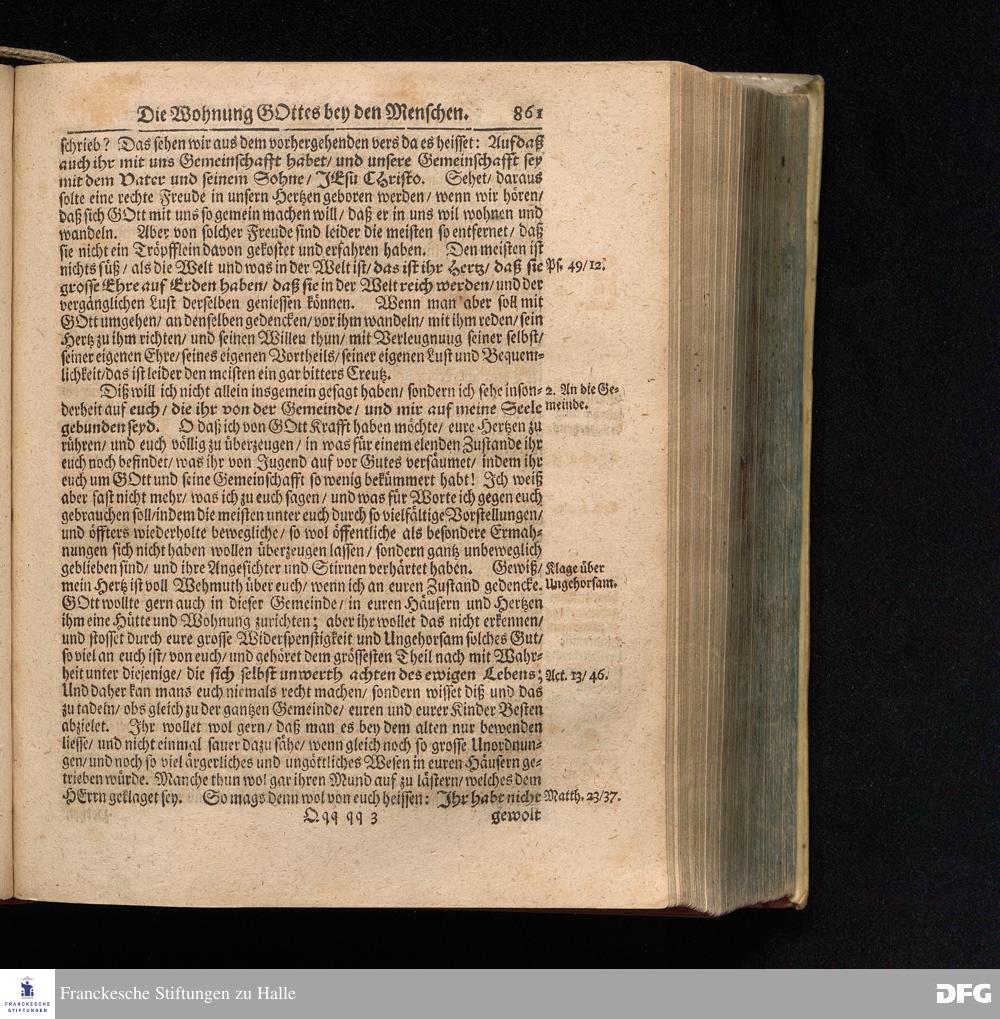 Die Wohnung GOttes bey den Menschen. 861
schrieb? Das sehen wir aus dem vorhergehenden vers da es heisset: Aufdaß
auch ihr mit uns Gemeinschafft habet/ und unsere Gemeinschafft sey
mit dem Vater und seinem Sohne/ JEsu CHristo. Sehet/ daraus
solte eine rechte Freude in unsern Hertzen geboren werden/ wenn wir hören/
daß sich GOtt mit uns so gemein machen will/ daß er in uns wil wohnen und
wandeln. Aber von solcher Freude sind leider die meisten so entfernet/ daß
sie nicht ein Tröpfflein davon gekostet und erfahren haben. Den meisten ist
nichts süß/ als die Welt und was in der Welt ist/ das ist ihr Hertz/ daß sie
Ps. 49/12.
grosse Ehre auf Erden haben/ daß sie in der Welt reich werden/ und der
vergänglichen Lust derselben geniessen können. Wenn man aber soll mit
GOtt umgehen/ an denselben gedencken/ vor ihm wandeln/ mit ihm reden/ sein
Hertz zu ihm richten/ und seinen Willen thun/ mit Verleugnuug seiner selbst/
seiner eigenen Ehre/ seines eigenen Vortheils/ seiner eigenen Lust und Bequem-
lichkeit/das ist leider den meisten ein gar bitters Creutz.
Diß will ich nicht allein insgemein gesagt haben/ sondern ich sehe inson-
2. An die Ge-
derheit auf euch/ die ihr von der Gemeinde/ und mir auf meine Seele
meinde.
gebunden seyd. O daß ich von GOtt Krafft haben möchte/ eure Hertzen zu
rühren/ und euch völlig zu überzeugen/ in was für einem elenden Zustande ihr
euch noch befindet/ was ihr von Jugend auf vor Gutes versäumet/ indem ihr
euch um GOtt und seine Gemeinschafft so wenig bekümmert habt! Ich weiß
aber fast nicht mehr/ was ich zu euch sagen/ und was für Worte ich gegen euch
gebrauchen soll/indem die meisten unter euch durch so vielfältige Vorstellungen/
und öffters wiederholte bewegliche/ so wol öffentliche als besondere Ermah-
nungen sich nicht haben wollen überzeugen lassen/ sondern gantz unbeweglich
geblieben sind/ und ihre Angesichter und Stirnen verhärtet haben. Gewiß/
Klage über
mein Hertz ist voll Wehmuth über euch/ wenn ich an euren Zustand gedencke.
Ungehorsam.
GOtt wollte gern auch in dieser Gemeinde/ in euren Häusern und Hertzen
ihm eine Hütte und Wohnung zurichten; aber ihr wollet das nicht erkennen/
und stosset durch eure grosse Widerspenstigkeit und Ungehorsam solches Gut/
so viel an euch ist/ von euch/ und gehöret dem grössesten Theil nach mit Wahr-
heit unter diejenige/ die sich selbst unwerth achten des ewigen Lebens;
Act. 13/46.
Und daher kan mans euch niemals recht machen/ sondern wisset diß und das
zu tadeln/ obs gleich zu der gantzen Gemeinde/ euren und eurer Kinder Besten
abzielet. Ihr wollet wol gern/ daß man es bey dem alten nur bewenden
liesse/ und nicht einmal sauer dazu sähe/ wenn gleich noch so grosse Unordnun-
gen/ und noch so viel ärgerliches und ungöttliches Wesen in euren Häusern ge-
trieben würde. Manche thun wol gar ihren Mund auf zu lästern/ welches dem
HErrn geklaget sey. So mags denn wol von euch heissen: Ihr habt nicht
Matth. 23/37.
Qqq qq 3 gewolt
Franckesche Stiftungen zu Halle
FRANCKESCHE
STIFTUNGEN
DFG